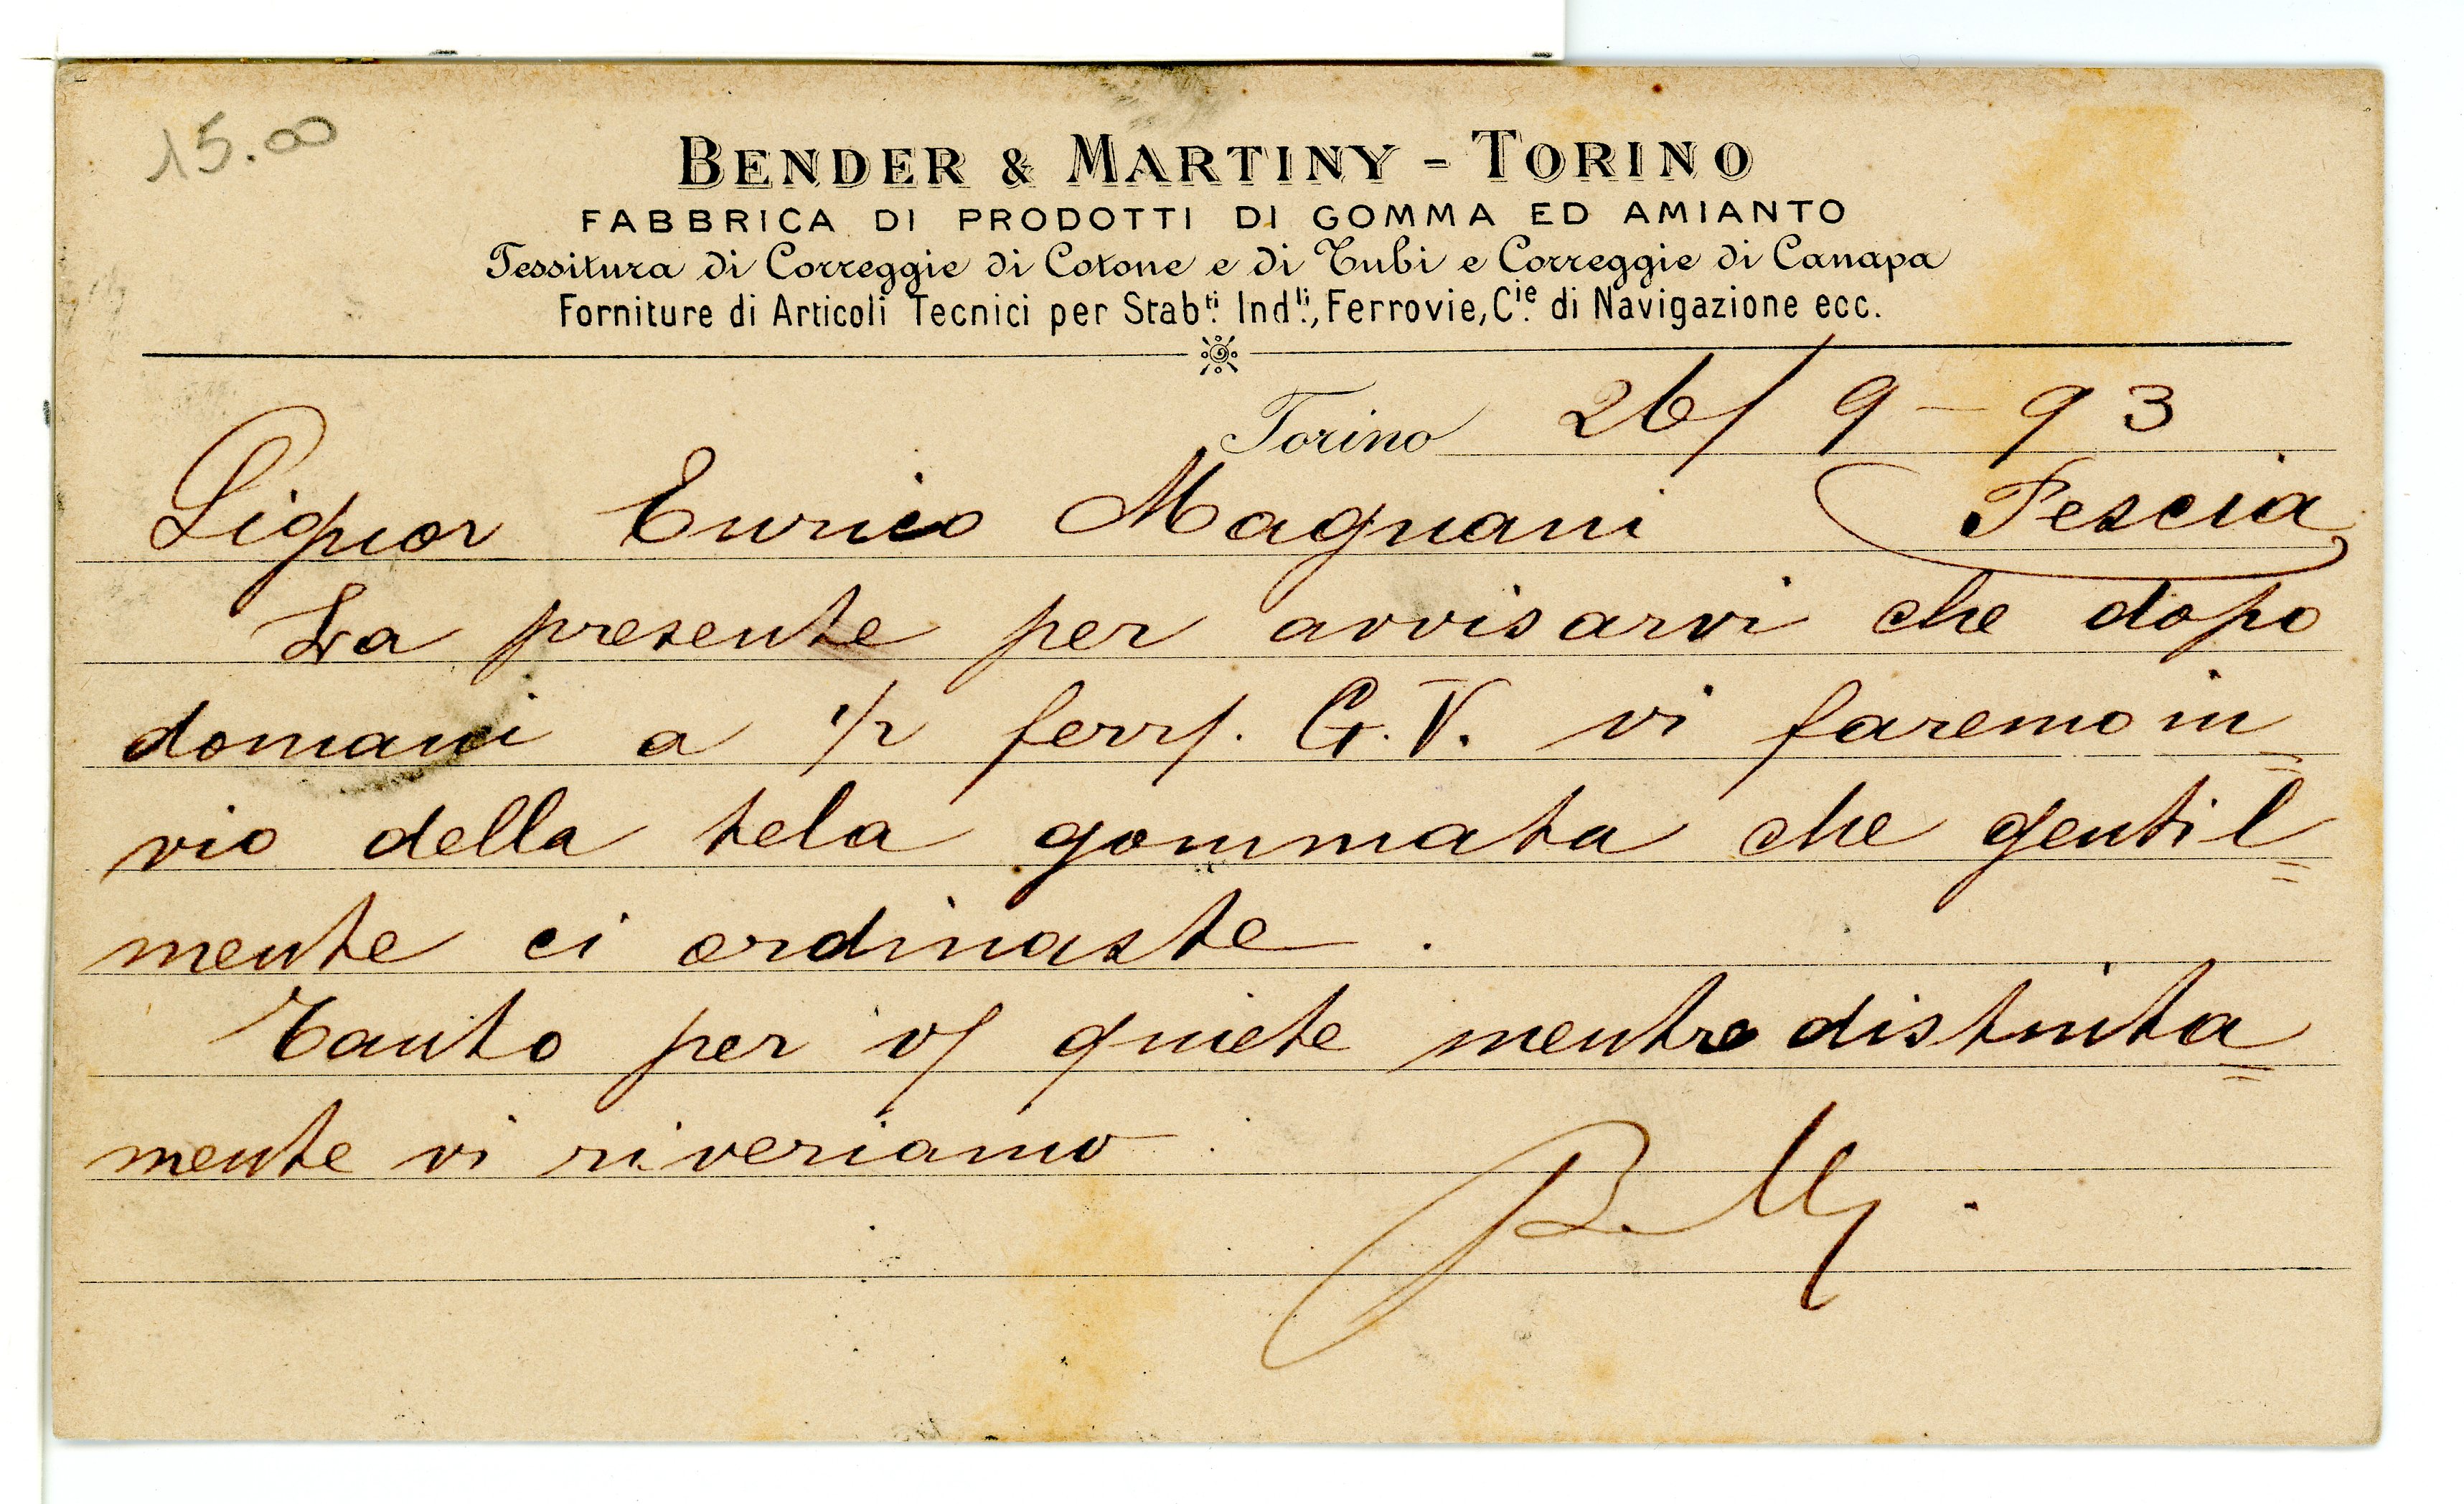 15.00
BENDER & MARTINY - TORINO
FABBRICA DI PRODOTTI DI GOMMA ED AMIANTO
Tessitura di Correggie di Cotone e di Tubi e Correggie di Canapa
Forniture di Articoli Tecnici per Stab.ti Ind.li, Ferrovie, C.ie di Navigazione ecc.
Torino 26/9-93
Signor Enrico Magnani Pescia
La presente per avvisarvi che dopo
domani a 1/2 ferr/. G.V. vi faremo in=
vio della tela gommata che gentil=
mente ci ordinaste.
Tanto per v/ quiete mentre distinta=
mente vi riveriamo.
B. M.